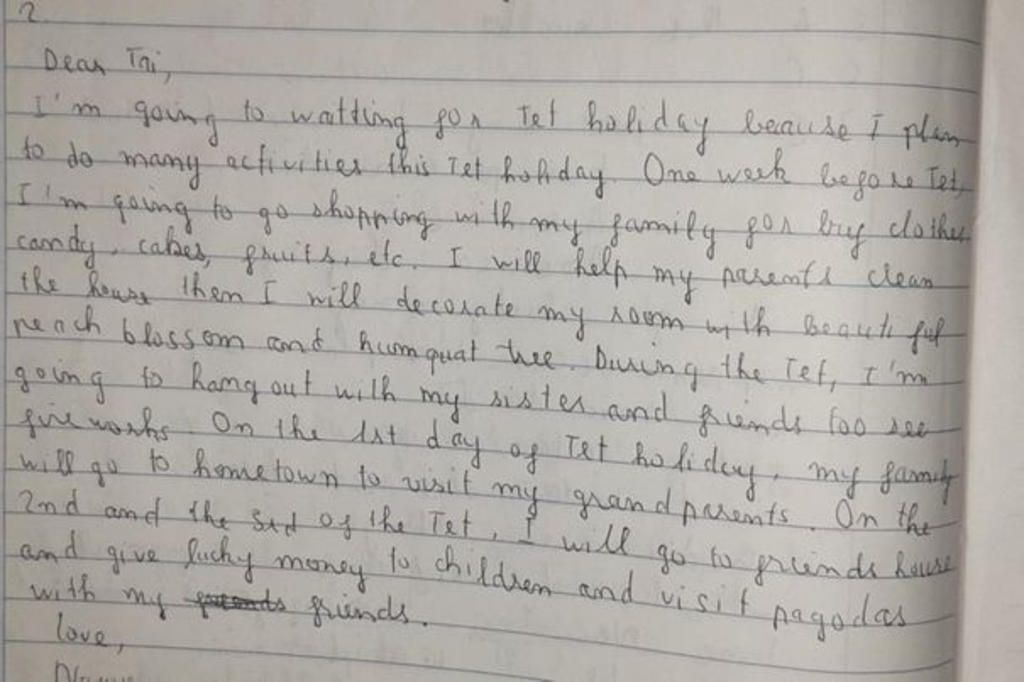 2
Dear Tai,
I'm going to waitting for Tet holiday beause I plan
to do many activities this Tet holiday. One week before Tet,
I'm going to go shopping with my family for buy clothes
candy, cakes, fruits, etc. I will help my parents clean
the house then I will decorate my room with beautiful
peach blossom and humquat tree. During the Tet, I'm
going to hang out with my sister and friends too see
fireworks. On the 1st day of Tet holiday, my family
will go to hometown to visit my grandparents. On the
2nd and the 3rd of the Tet, I will go to friends house
and give lucky money to children and visit pagodas
with my friends.
love,